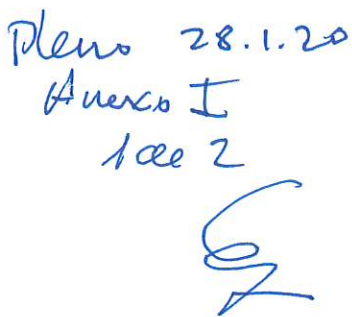 Pleno 28.1.20
Anexo I
1 de 2